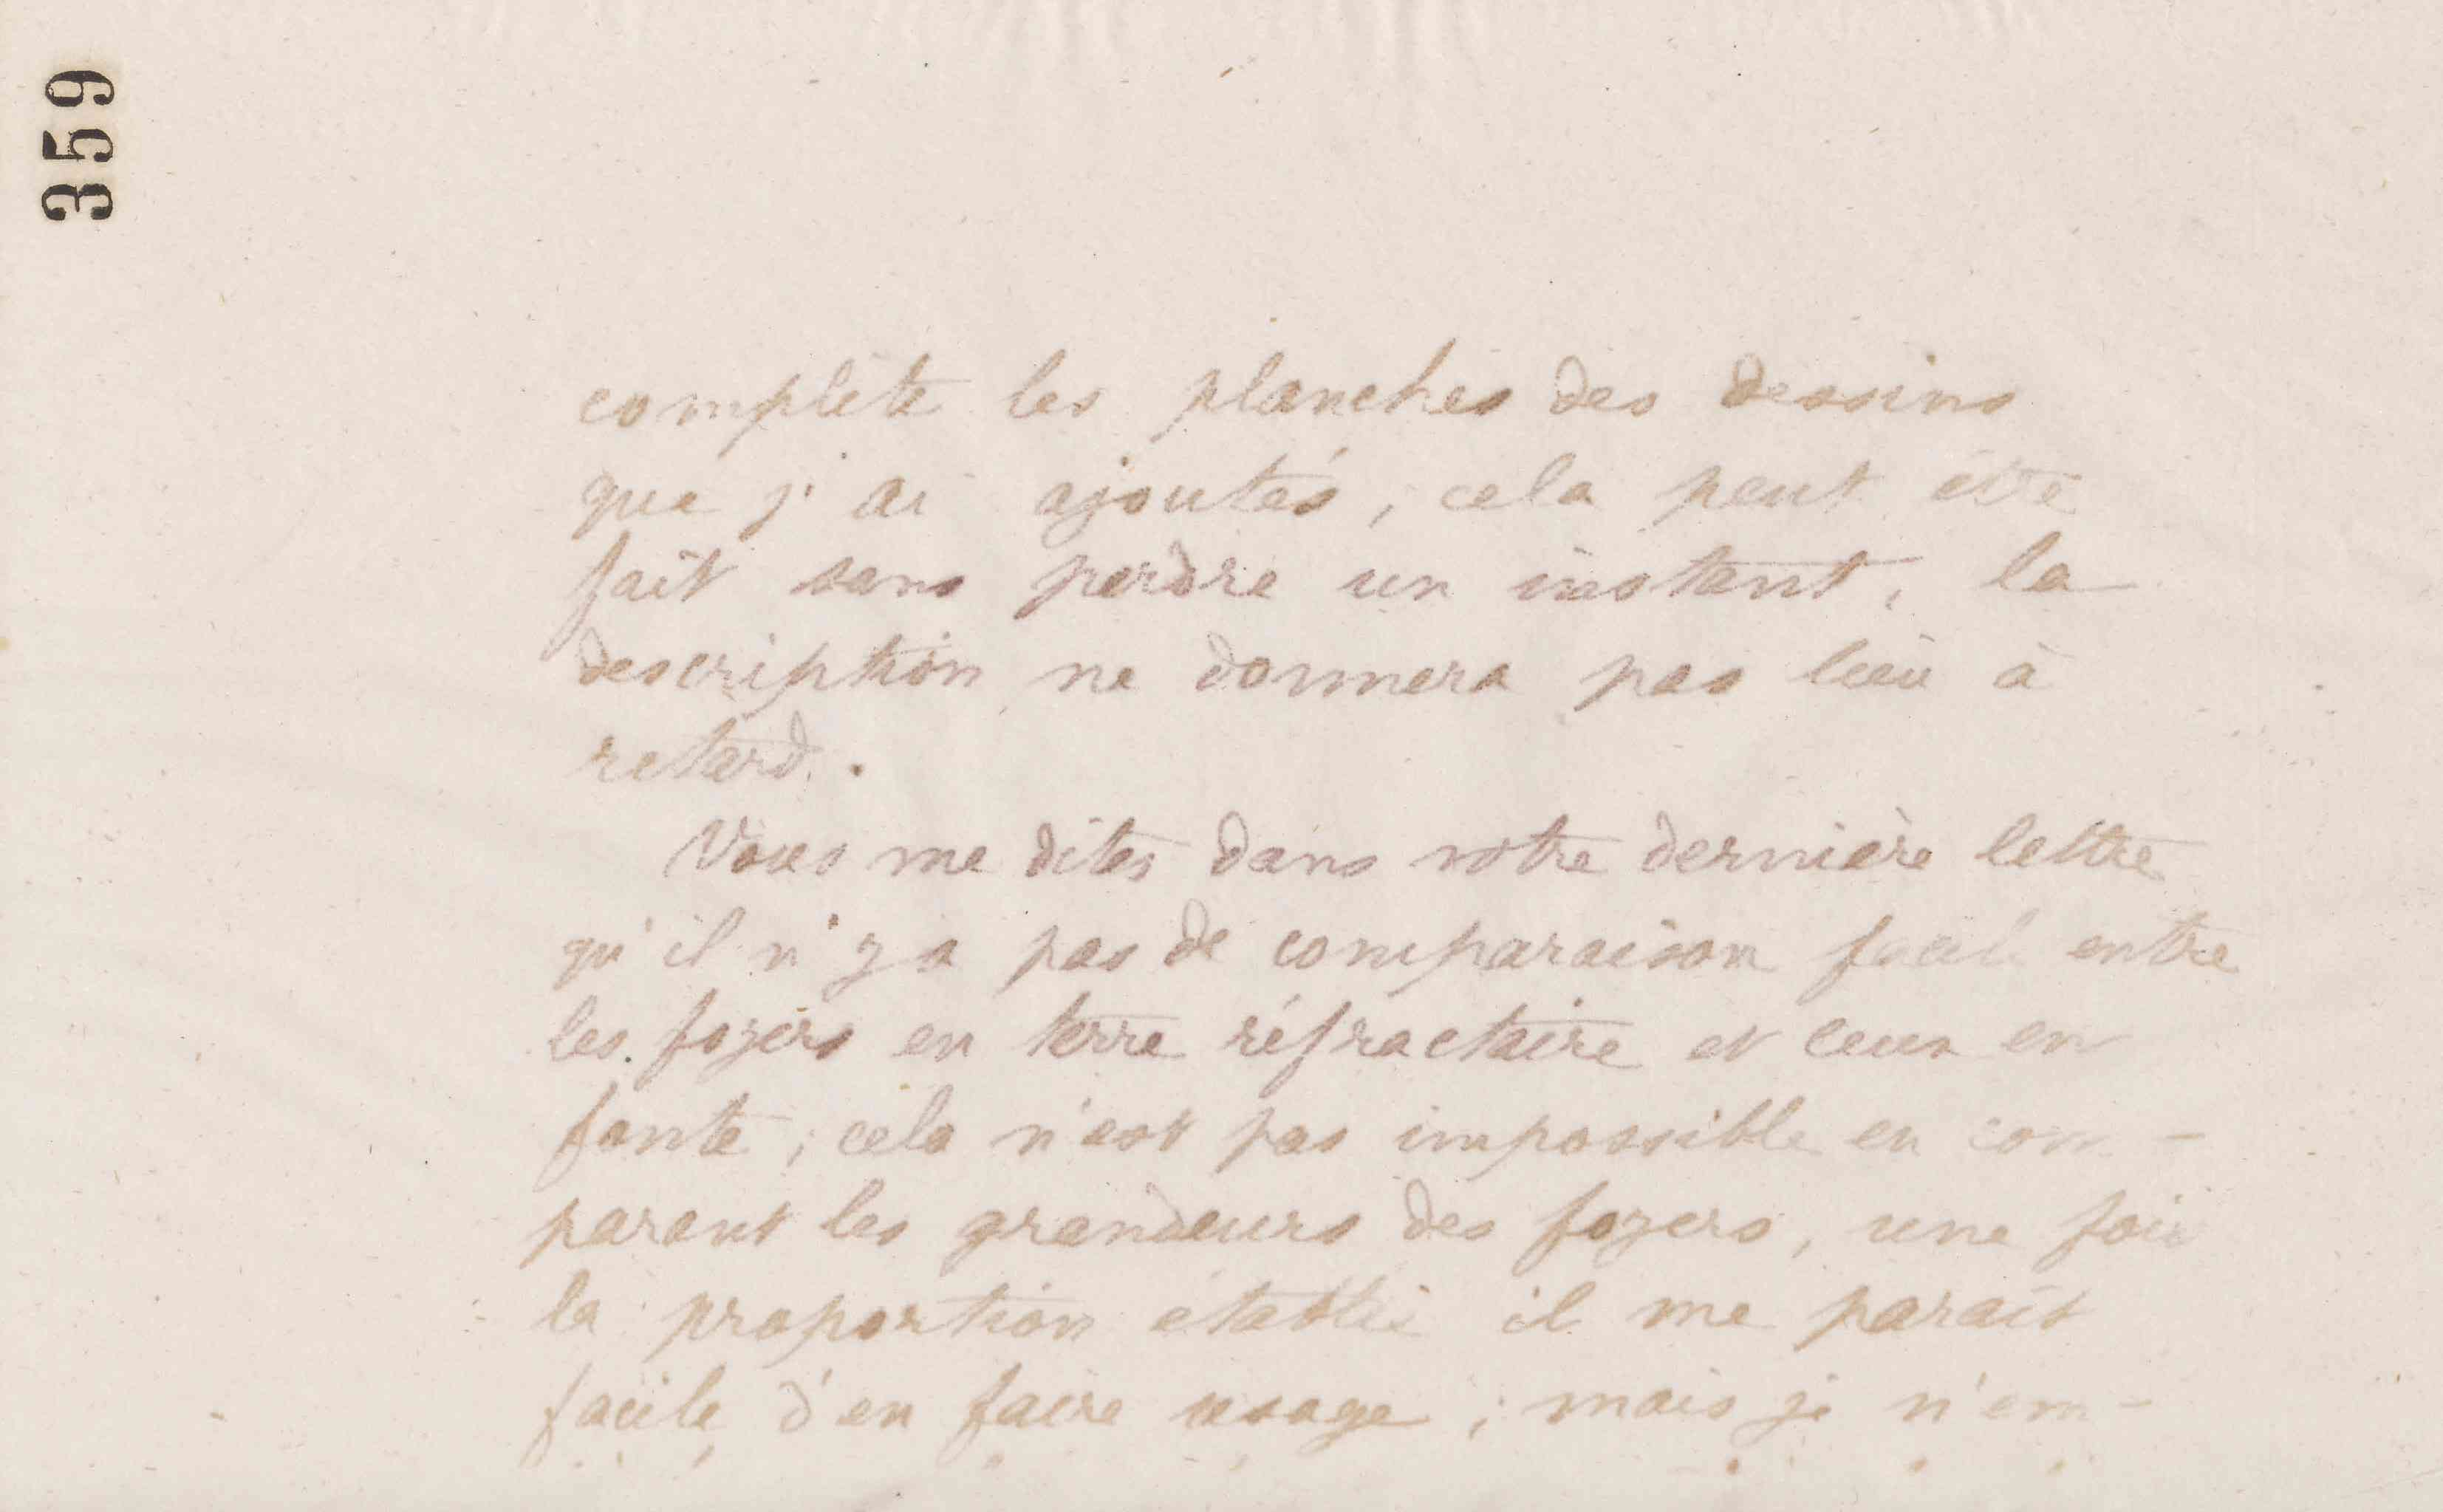 359
complète les planches des dessins
que j'ai ajoutés, cela peut être
fait sans perdre un instant, la
description ne donnera pas lieu à
retard.
Vous me dites dans votre dernière lettre
qu'il n'y a pas de comparaison facile entre
les foyers en terre réfractaire et ceux en
fonte ; cela n'est pas impossible en com-
parant les grandeurs des foyers, une fois
la proportion établie il me parait
facile d'en faire usage ; mais je n'em-